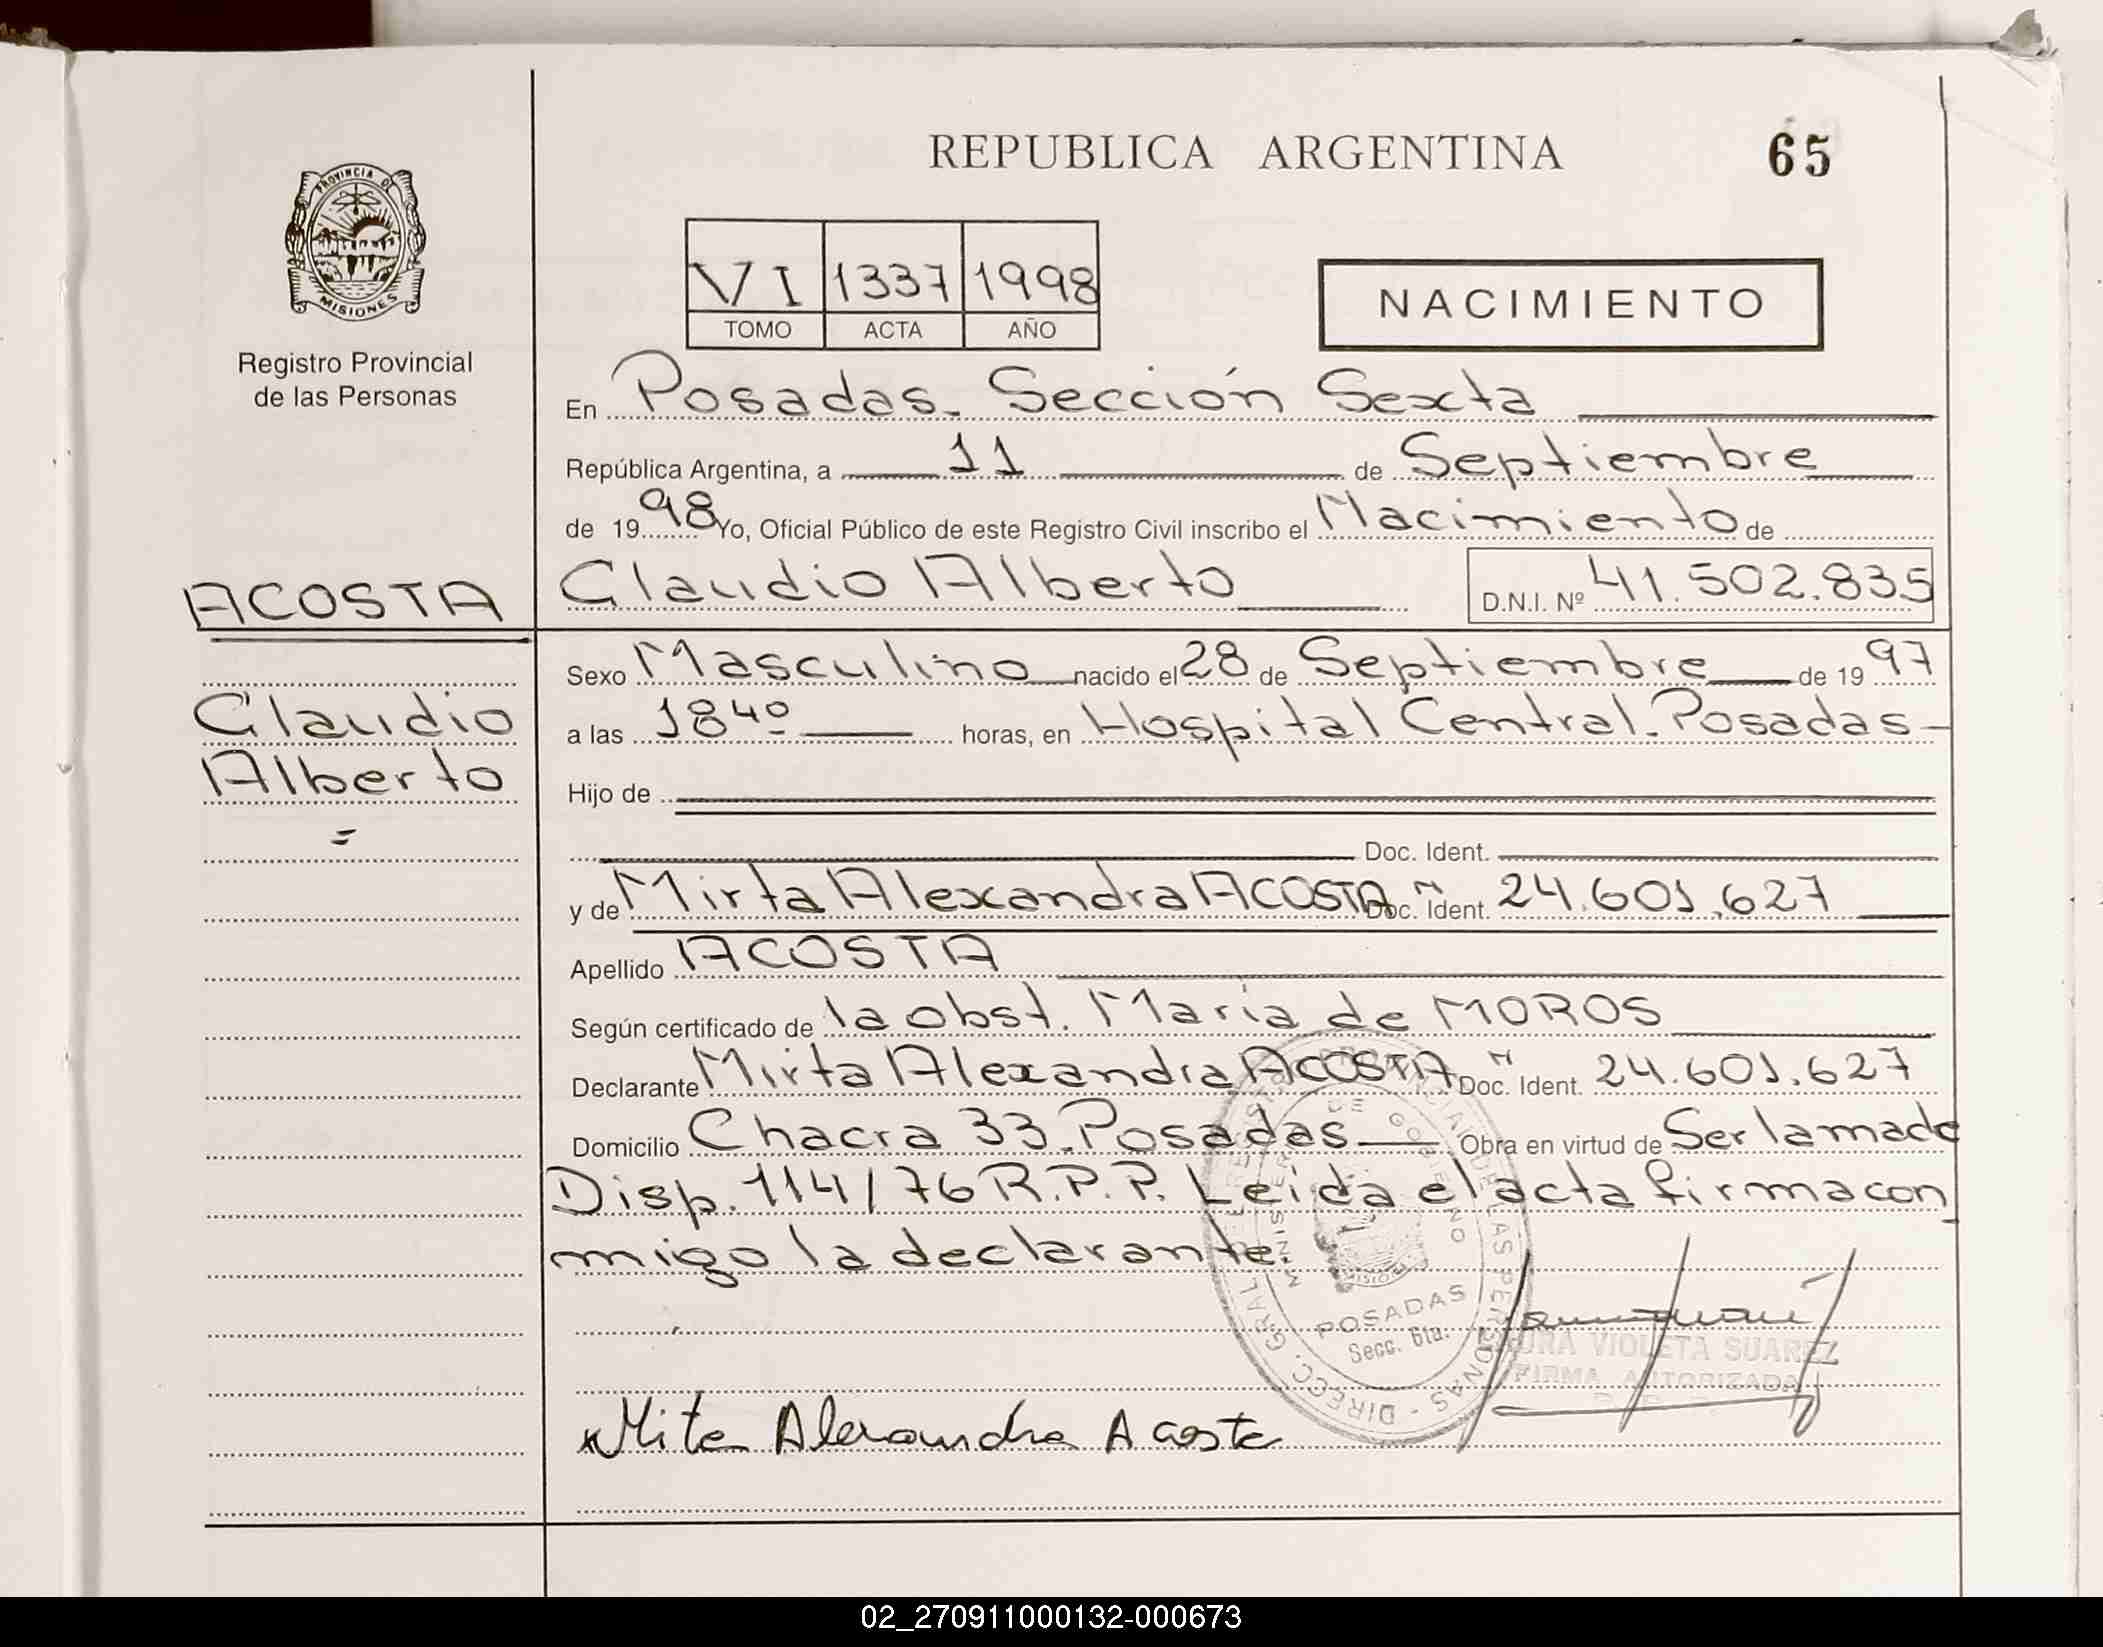 REPUBLICA ARGENTINA
65
PROVINCIA DE
MISIONES
Registro Provincial
de las Personas
VI 1337 1998
TOMO ACTA AÑO
NACIMIENTO
En Posadas. Sección Sexta
República Argentina, a 11 de Septiembre
de 1998 Yo, Oficial Público de este Registro Civil inscribo el Nacimiento de
ACOSTA
Claudio Alberto D.N.I. Nº 41.502.835
Claudio
Alberto
Sexo Masculino nacido el 28 de Septiembre de 1997
a las 18 40 horas, en Hospital Central. Posadas-
Hijo de
Doc. Ident.
y de Mirta Alexandra ACOSTA Doc. Ident. 24.601.627
Apellido ACOSTA
Según certificado de la obst. Maria de MOROS
Declarante Mirta Alexandra ACOSTA Doc. Ident. 24.601.627
Domicilio Chacra 33. Posadas Obra en virtud de Ser la madre
Disp. 114/76 R.P.P. Leida el acta firma con
migo la declarante.
POSADAS
Secc. 6ta.
VIOLETA SUAREZ
FIRMA AUTORIZADA
Mirta Alexandra Acosta
02_270911000132-000673